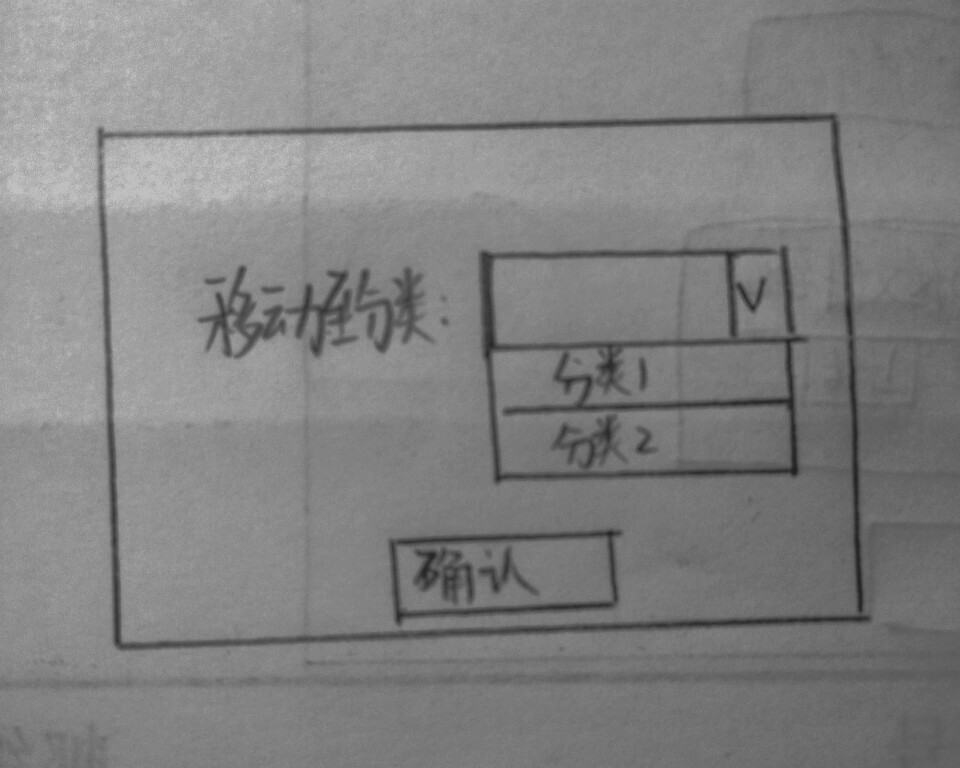 移动至分类:
V
分类1
分类2
确认